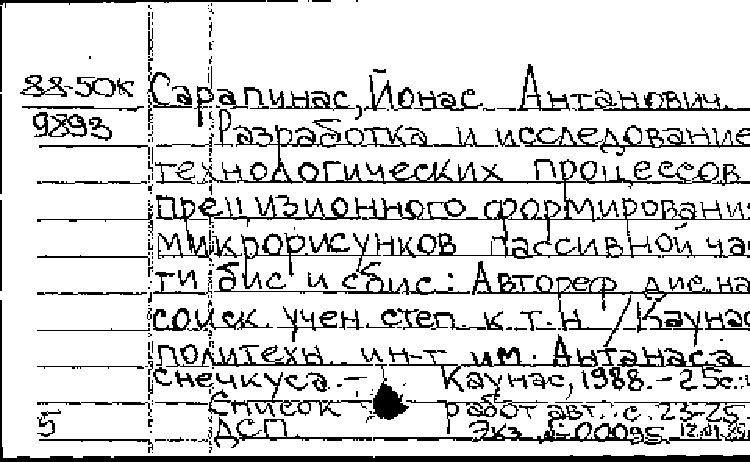 88-50К Сарапинас, Йонас Антанович.
9893 Разработка и исследование
технологических процессов
прецизионного формирования
микрорисунков пассивной час
ти бис и сбис: Автореф дис. на
соиск. учен. степ. к.т.н. / Каунас
политехн. ин-т им. Антанаса
Снечкуса. - Каунас, 1988. - 25с.:
Список работ авт.: с. 23-25.
5 ДСП. Экз. № 00095